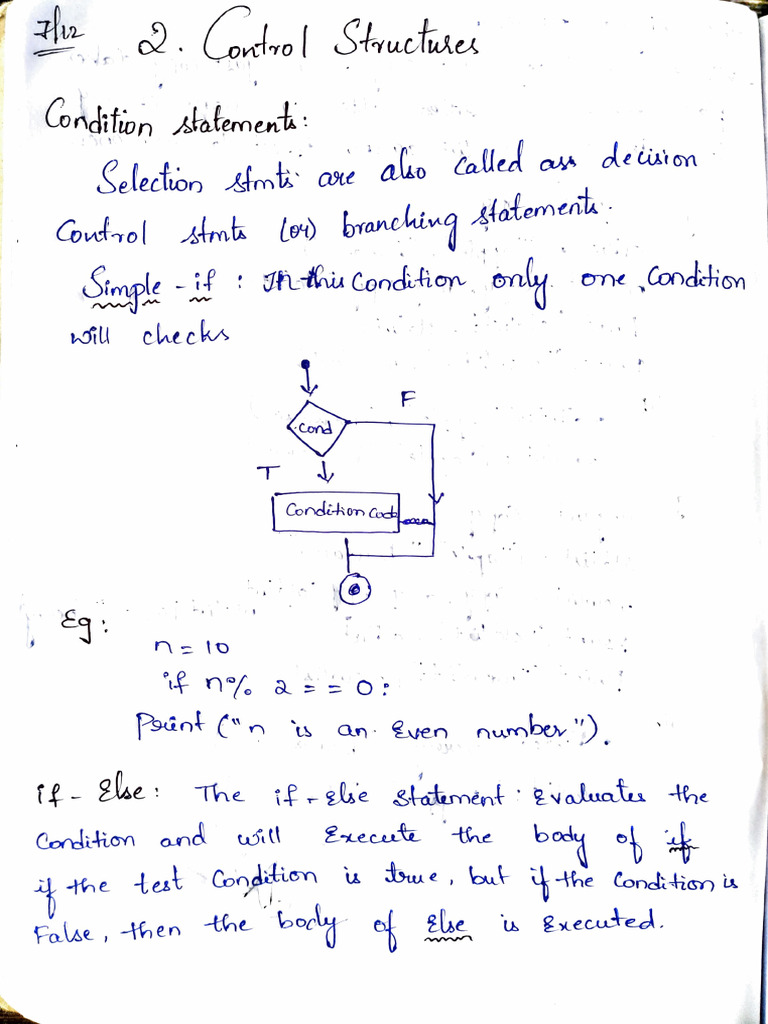 7/12
2. Control Structures
Condition statements:
Selection stmts are also called ass decision
Control stmts (or) branching statements.
Simple - if : In this Condition only one Condition
will checks
F
cond
T
Condition Code
Eg:
n = 10
if n% 2 = = 0 :
Print ("n is an Even number").
if - Else : The if - Else statement Evaluates the
Condition and will Execute the body of if
if the test Condition is true, but if the Condition is
False, then the body of Else is Executed.